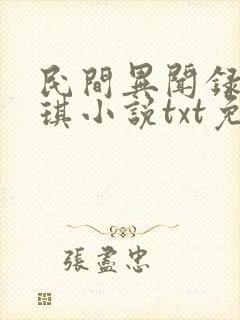 民間異聞録
琪小說txt免
張盡忠